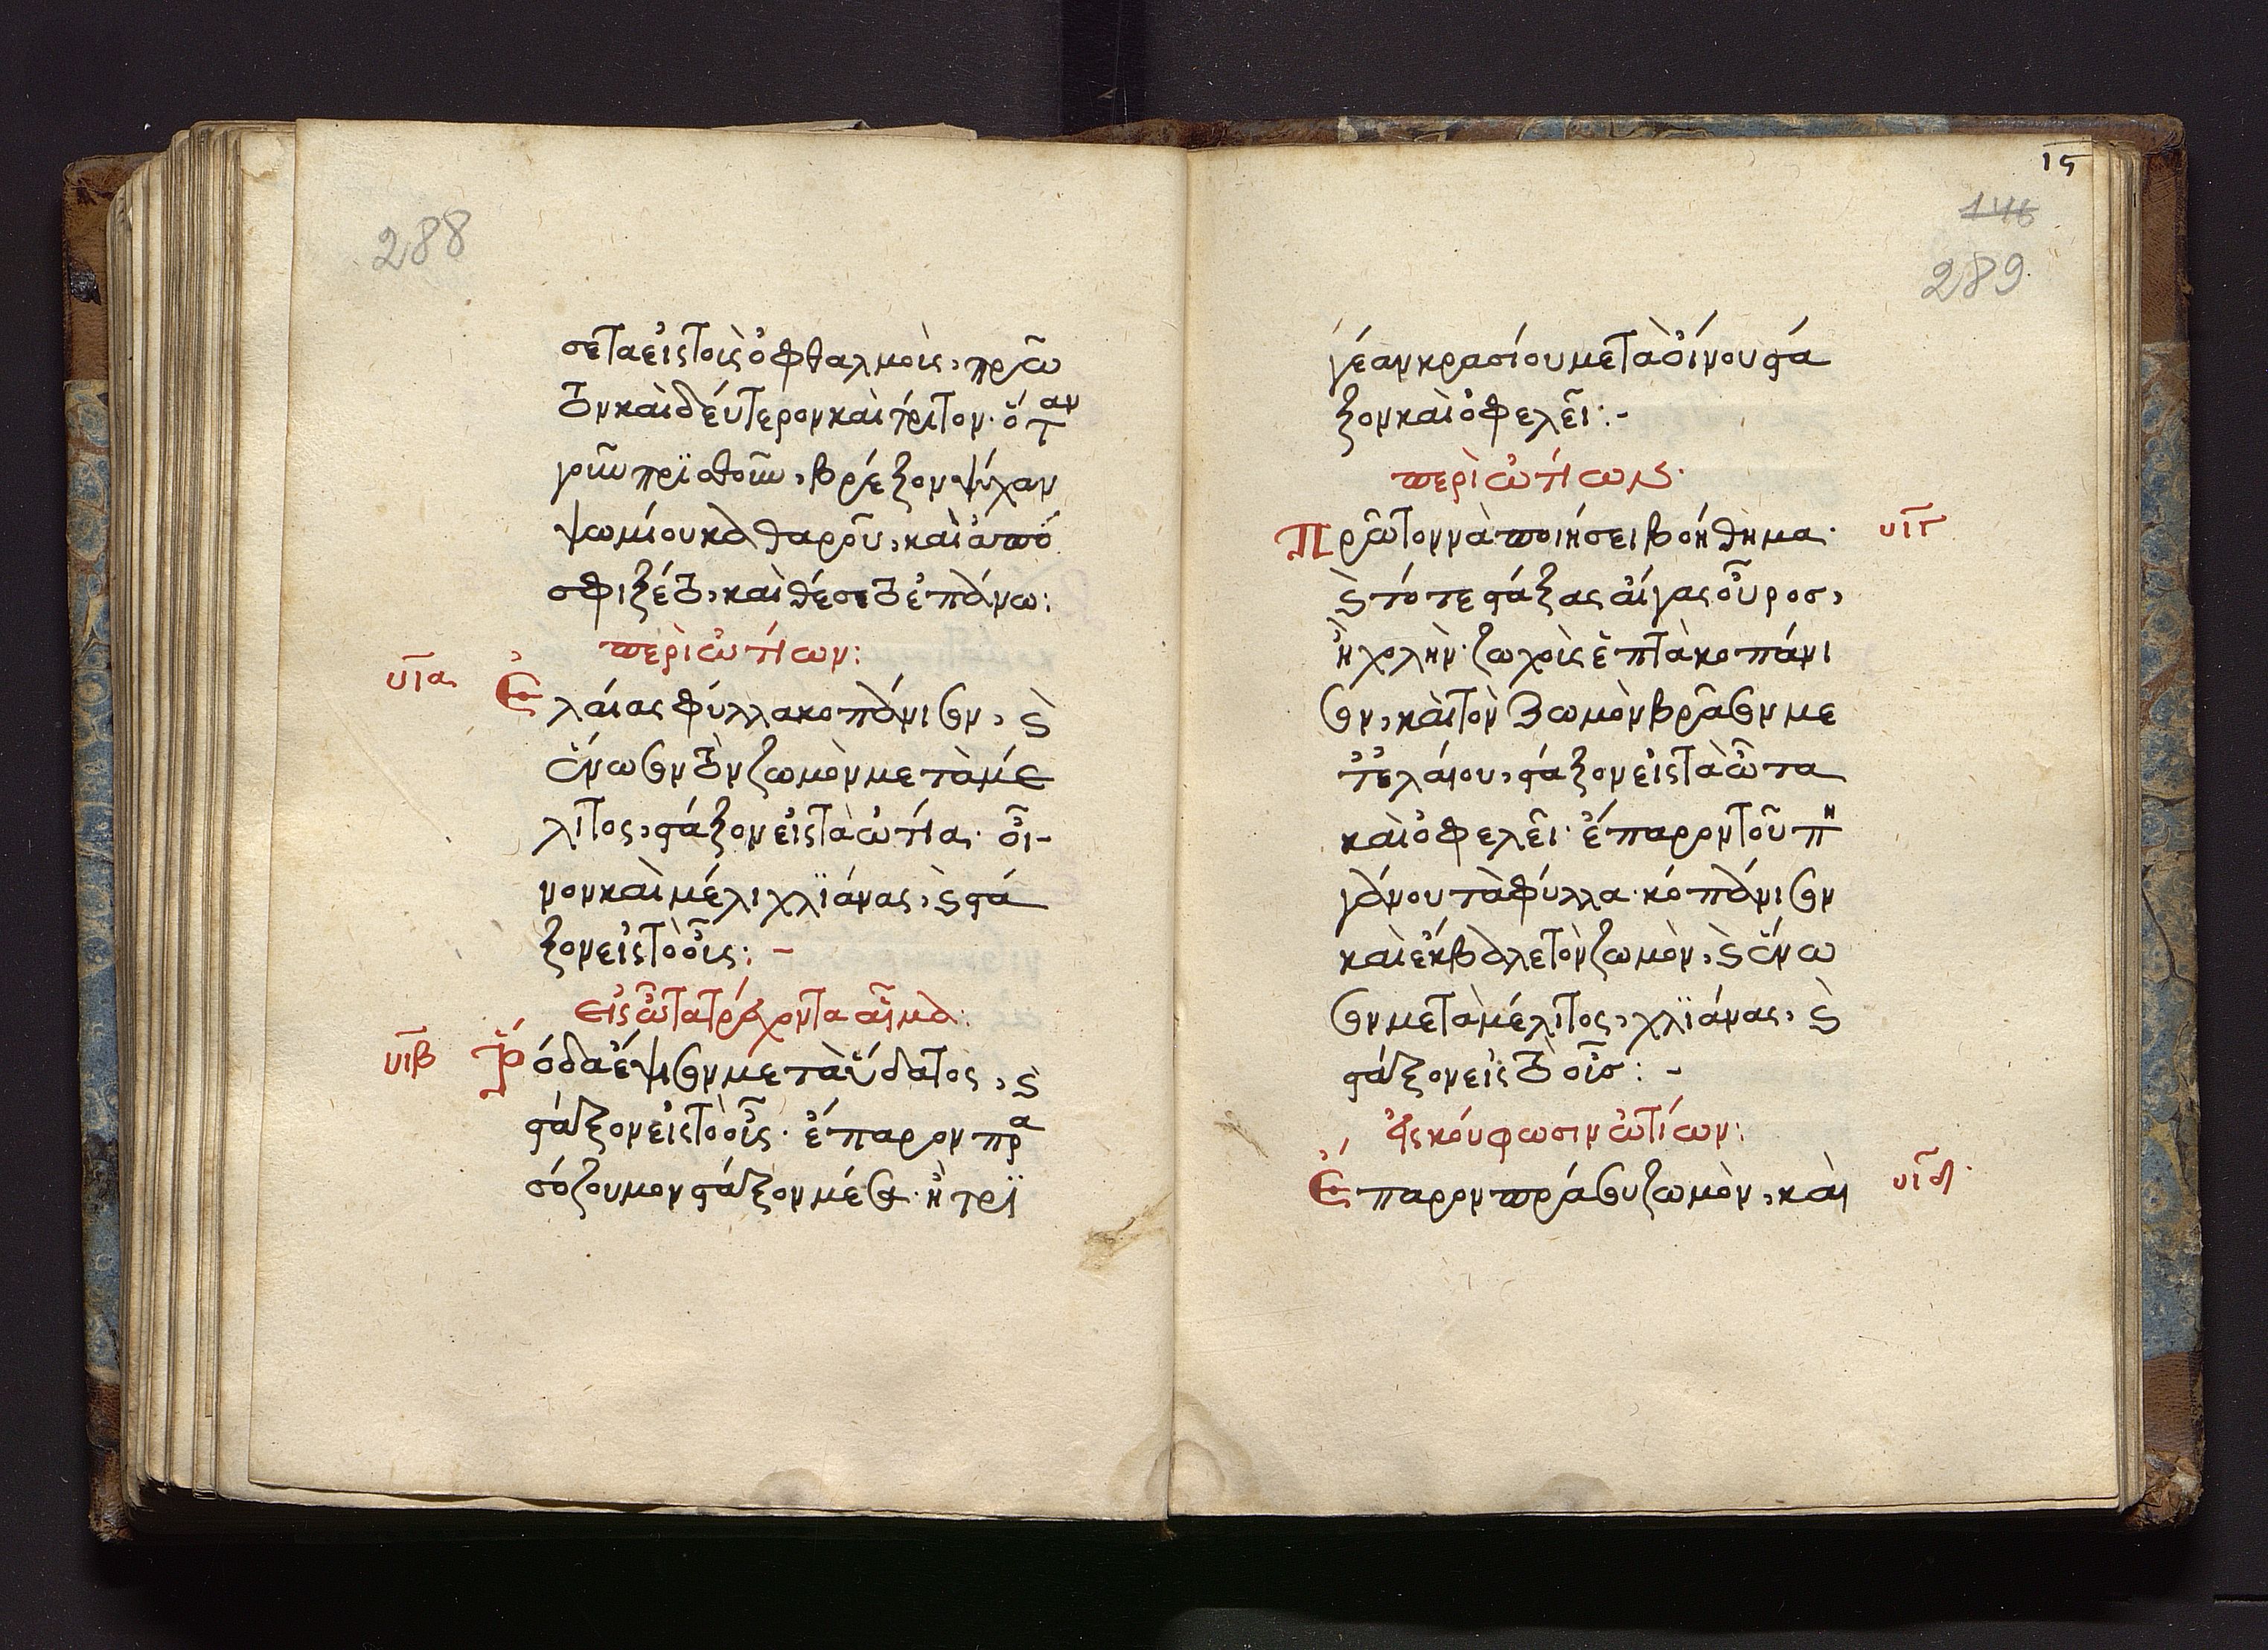 288
σεται εἰς τοὺς ὀφθαλμοὺς, πρῶ
τον καὶ δεύτερον καὶ τρίτον· ὅταν
ψωμίου καθαροῦ, καὶ ἀπο
σφιξέ το, καὶ θέσε το ἐπάνω:
περὶ ὠτίων:
υια
Ἐλαίας φύλλα κοπάνισον, ϗ
ἕνωσον τὸν ζωμὸν μετὰ μέ
λιτος, στάξον εἰς τὰ ὠτία· οἶ-
νον καὶ μέλι χλϊάνας, ϗ στά
ξον εἰς τὸ οὖς: -
εἰς ὦτα τρέχοντα αἷμα:
υιβ
Ῥόδα ἕψησον μετὰ ὕδατος, ϗ
στάξον εἰς τὸ οὖς· ἔπαρον πρα
σόζουμον στάξον μέσα· ἢ τρϊ
ις
146
289
γέαν κρασίου μετὰ οἴνου στά
ξον καὶ ὀφελεῖ: -
περὶ ὠτίων·
υιγ
Πρῶτον νὰ ποιήσει βοήθημα·
ϗ τότε στάξας αἴγας οὖροσ,
ἢ χολὴν· ζωχοὶς ἑπτὰ κοπάνι
σον, καὶ τὸν ζωμὸν βράσον με
τὲ ἐλαίου, στάξον εἰς τὰ ὦτα
καὶ ὀφελεῖ· ἔπαρον τοῦ πη
γάνου τὰ φύλλα· κοπάνισον
καὶ ἔκβαλε τὸν ζωμὸν, ϗ ἕνω
σον μετὰ μέλιτος, χλϊάνας, ϗ
στάξον εἰς τὸ οὖσ: -
εἰς κούφωσιν ὠτίων:
υιδ
Ἔπαρον πράσου ζωμὸν, καὶ